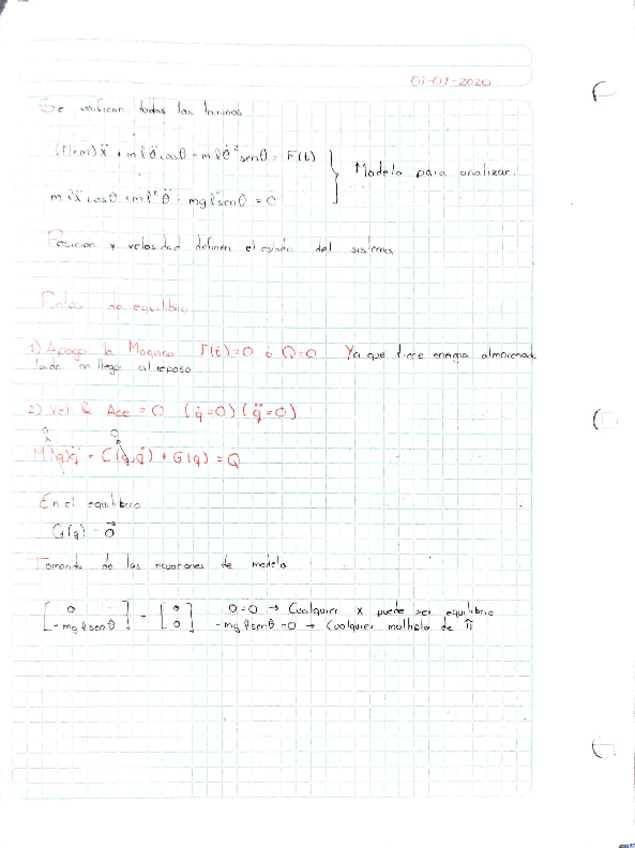 01-07-2020
Se unifican todos los terminos
(M+m)ẍ + mlθ̈cosθ - mlθ̇²senθ = F(t)
Modelo para analizar.
mlẍcosθ + ml²θ̈ - mglsenθ = 0
Posicion y velosidad definen el estado del sistema
de equilibrio
1) Apago la Maquina F(t)=0 ó Q=0 Ya que tiene energia almacenada
en llegar al reposo
2) vel & Ace = 0 (q̇=0)(q̈=0)
0 0
M(q)q̈ + C(q,q̇) + G(q) = Q
En el equilibrio
G(q) = 0⃗
Tomando de las ecuaciones de modelo
[0 -mglsenθ] = [0 0] 0=0 → Cualquier x puede ser equilibrio
-mglsenθ=0 → Cualquier de π